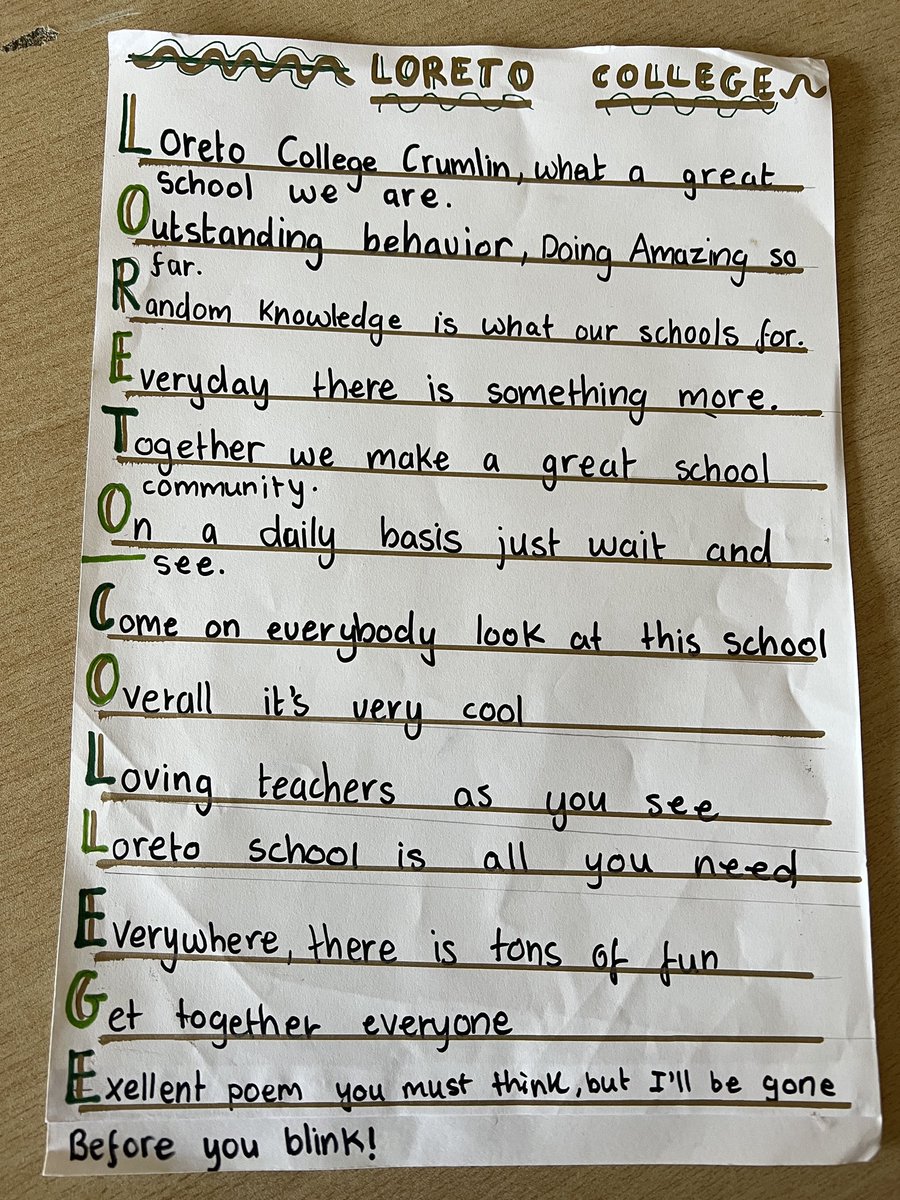 LORETO COLLEGE
Loreto College Crumlin, what a great
school we are.
Outstanding behavior, Doing Amazing so
far.
Random Knowledge is what our schools for.
Everyday there is something more.
Together we make a great school
community.
On a daily basis just wait and
see.
Come on everybody look at this school
Overall it's very cool
Loving teachers as you see
Loreto school is all you need
Everywhere, there is tons of fun
Get together everyone
Exellent poem you must think, but I'll be gone
Before you blink!